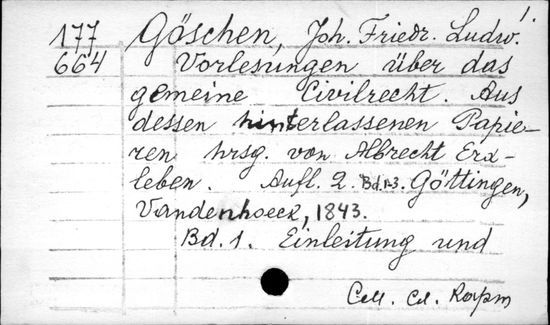 177 Göschen, Joh. Friedr. Ludw.
664 Vorlesungen über das
gemeine Civilrecht. Aus
dessen hinterlassenen Papie-
ren hrsg. von Albrecht Erx-
leben. Aufl. 2. Bd. 1-3. Göttingen,
Vandenhoeck, 1843.
Bd. 1. Einleitung und